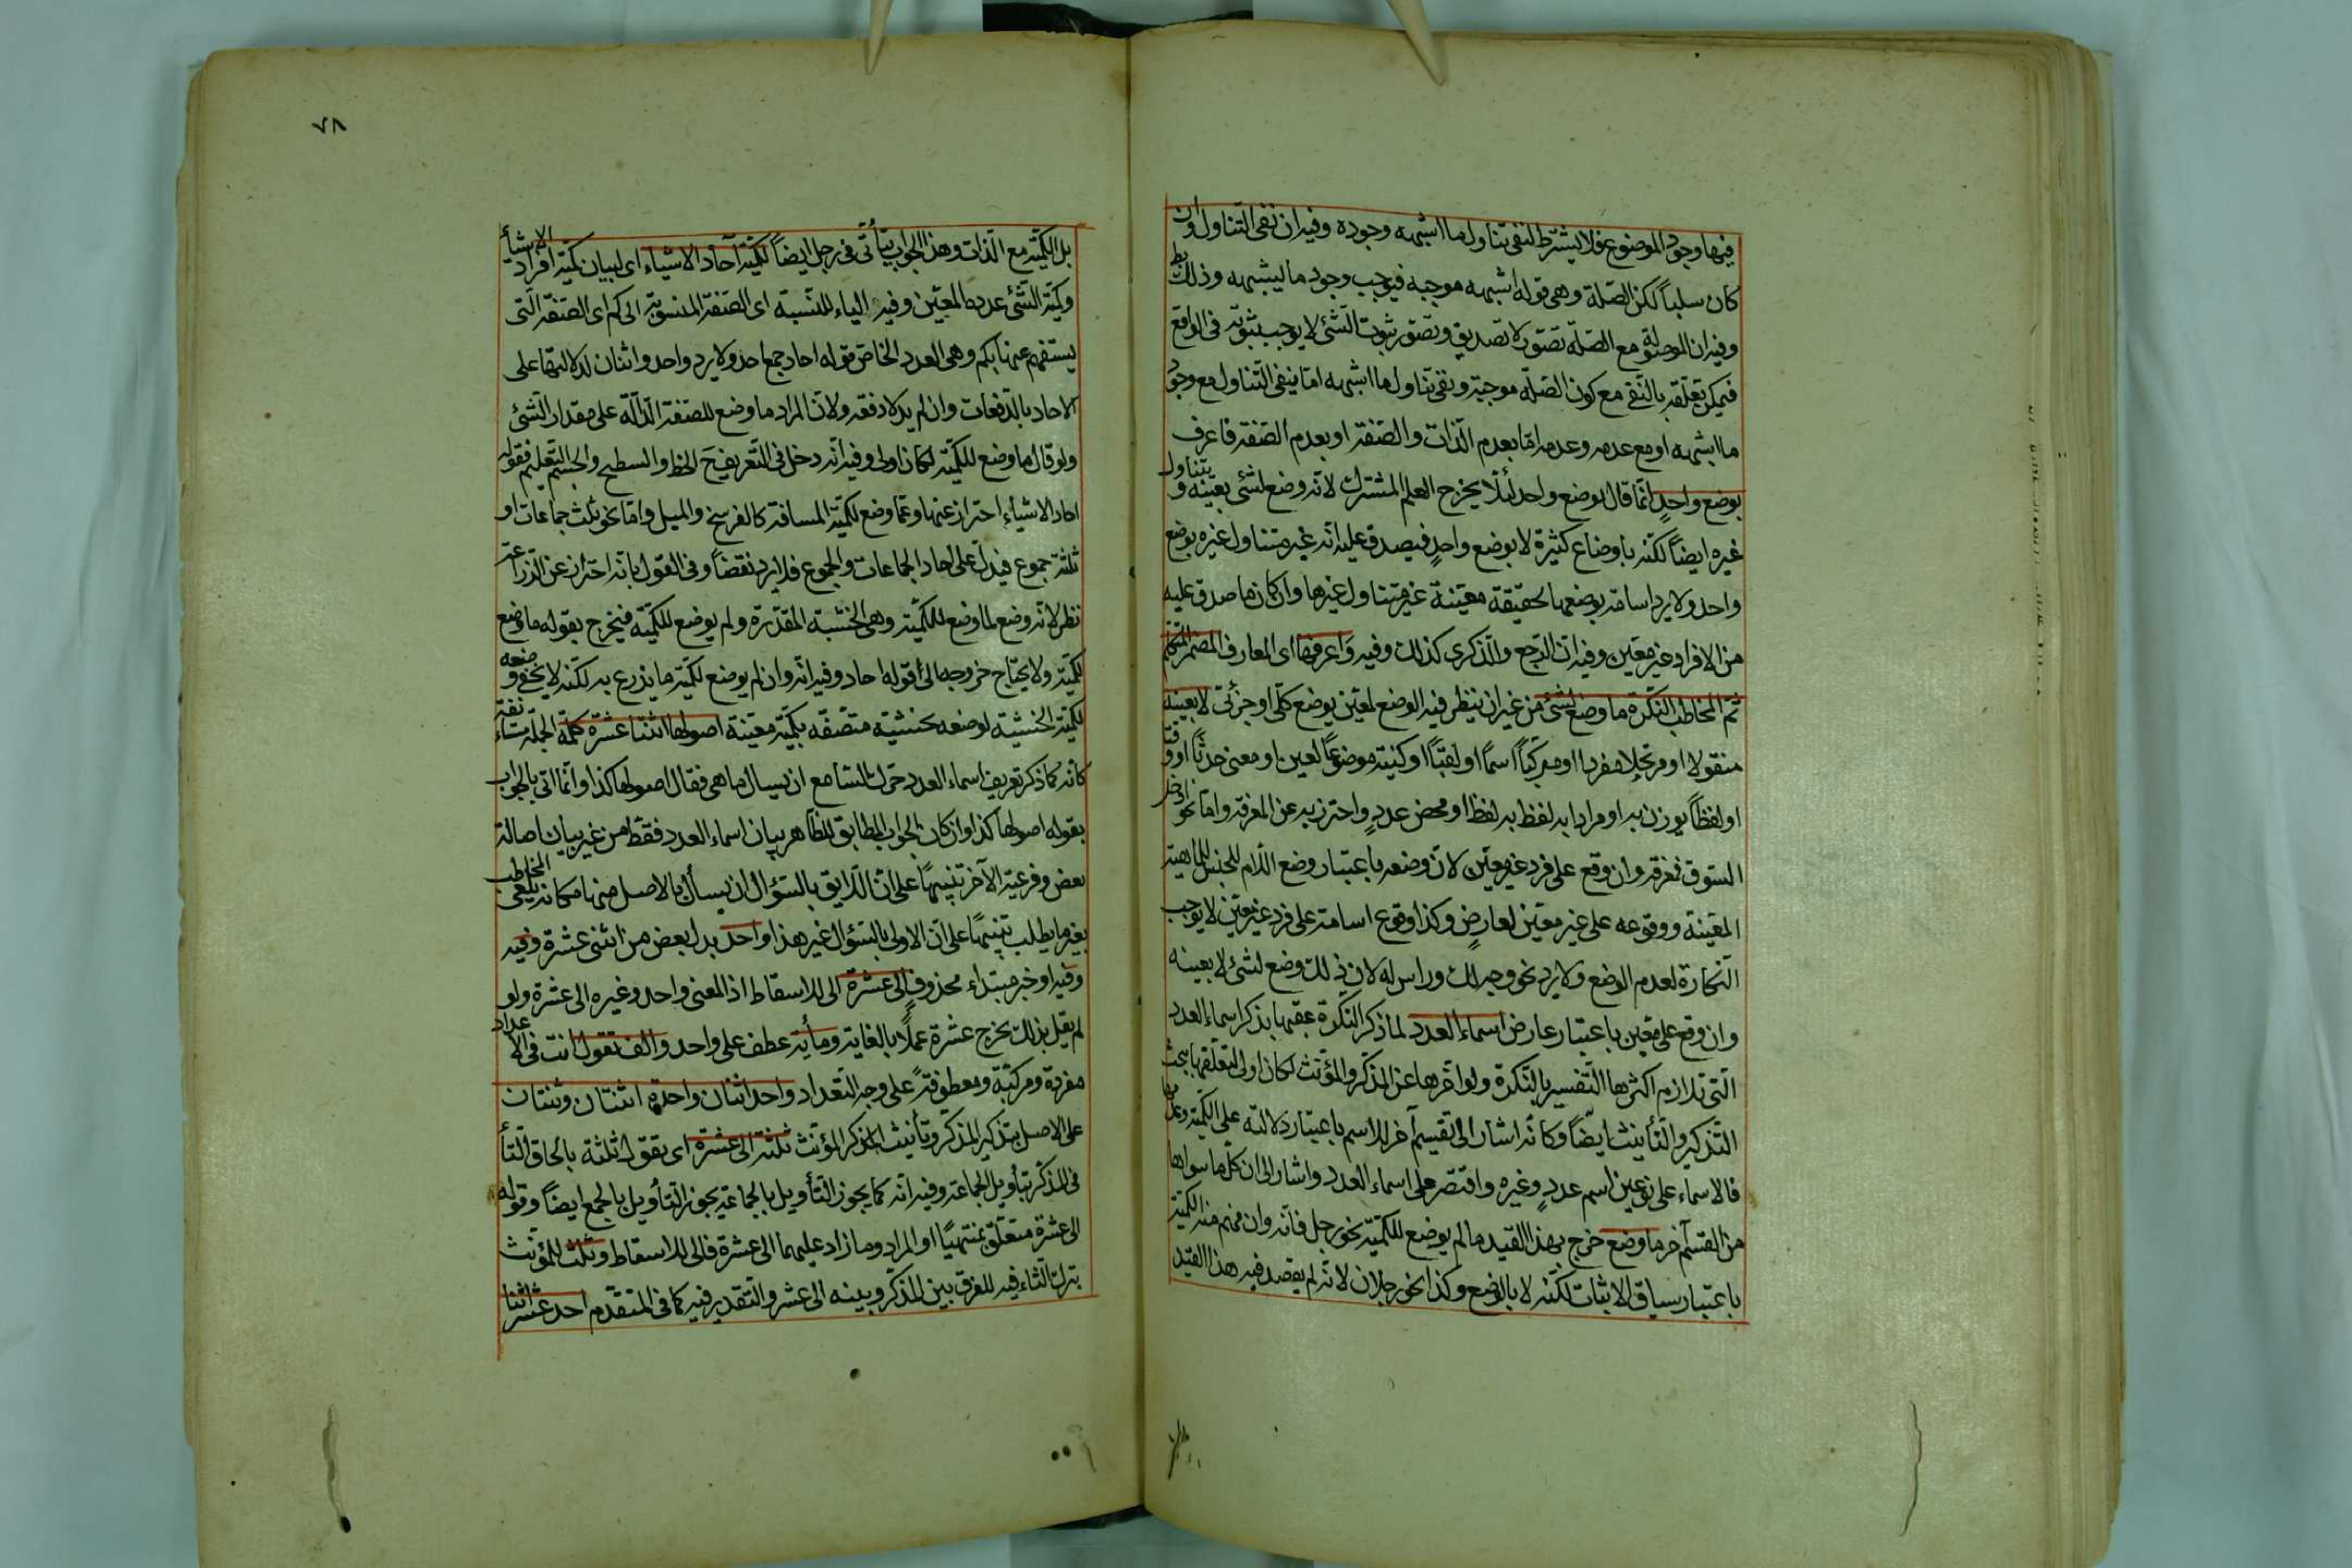 فيها وجود الموضوع فلا يشترط لنفى تناول ما اشبهه وجوده وفيه ان نفى التناول وان
كان سلبا لكن الصلة وهى قوله اشبهه موجبه فيوجب وجود ما يشبهه وذلك
وفيه ان الموصولة مع الصلة تصور لا تصديق وتصور ثبوت الشئ لا يوجب ثبوته فى الواقع
فيمكن تعلقه بالنفى مع كون الصلة موجبة ونفى تناول ما اشبهه اما ينفى التناول مع وجود
ما اشبهه او مع عدمه وعدمه اما بعدم الذات والصفة او بعدم الصفة فاعرف
بوضع واحد انما قال بوضع واحد لئلا يخرج العلم المشترك لانه وضع لشئ بعينه ويتناول
غيره ايضا لكنه باوضاع كثيرة لا بوضع واحد فيصدق عليه انه غير متناول غيره بوضع
واحد ولا يرد اسامة بوضعها لحقيقة معينة غير متناول غيرها وان كان ما صدق عليه
من الافراد غير معين وفيه ان الرجع والذكرى كذلك وفيه واعرفها اى المعارف المضمر المتكلم
ثم المخاطب النكرة ما وضع لشئ من غير ان ينظر فيه الوضع لمعين بوضع كلى او جزئى لا بعينه
منقولا او مرتجلا مفردا او مركبا اسما او لقبا او كنية موضوعا لعين او معنى حدثا او وقتا
او لفظا يوزن به او مرادا به لفظ به لفظا او محض عدد واحترز به عن المعرفة واما نحو ادخل
السوق فمعرفة وان وقع على فرد غير معين لان وضعه باعتبار وضع اللام للجنس للماهية
المعينة ووقوعه على غير معين لعارض وكذا وقوع اسامة على فرد غير معين لا يوجب
النكارة لعدم الوضع ولا يرد نحو وجهك وراسك له لان ذلك وضع لشئ لا بعينه
وان وقع على معين باعتبار عارض اسماء العدد لما ذكر النكرة عقبها بذكر اسماء العدد
التى تلازم اكثرها التفسير بالنكرة ولو اخرها عن المذكر والمؤنث لكان اولى لتعلقها ببحث
التذكير والتأنيث ايضا وكأنه اشار الى تقسيم آخر للاسم باعتبار دلالته على الكمية وعدمها
فالاسماء على نوعين اسم عدد وغيره واقتصر على اسماء العدد واشار الى ان كل ما سواها
من القسم آخر ما وضع خرج بهذا القيد ما لم يوضع للكمية نحو رجل فانه وان فهم منه الكمية
باعتبار سياق الاثبات لكنه لا بالوضع وكذا نحو رجلان لانه لم يقصد فيه هذا القيد
٧٨
بل الكمية مع الذات وهذا الجواب يتأتى فى رجل ايضا لكمية آحاد الاشياء اى لبيان كمية افراد الاشيأ
وكمية الشئ عدده المعين وفيه الياء للنسبة اى الصفة المنسوبة الى كم اى الصفة التى
يستفهم عنها بكم وهى العدد الخاص قوله احاد جمع احد ولا يرد واحد واثنان لدلالتها على
الاحاد بالدفعات وان لم يدلا دفعة ولان المراد ما وضع للصفة الدالة على مقدار الشئ
ولو قال ما وضع للكمية لكان اولى وفيه انه دخل فى التعريف ح الخط والسطح والجسم التعليم فقوله
احاد الاشياء احتراز عنها وعما وضع لكمية المسافة كالفرسخ والميل واما نحو ثلث جماعات او
ثلثة جموع فيدل على احاد الجماعات والجموع فلا يرد نقضا وفى القول بانه احتراز عن الذراع
نظر لانه وضع لما وضع للكمية وهى الخشبة المقدرة ولم يوضع للكمية فيخرج بقوله ما وضع
لكمية ولا يحتاج خروجه الى قوله احاد وفيه انه وان لم يوضع لكمية ما يذرع به لكنه لا يخفى وضعه
لكمية الخشبة لوضعه لخشبة متصفة بكمية معينة اصولها اثنتا عشرة كلمة الجملة مستأنفة
كأنه لما ذكر تعريف اسماء العدد حرك السامع ان يسال ما هى فقال اصولها كذا وانما اتى بالجواب
بقوله اصولها كذا وان كان الجواب المطابق للظاهر بيان اسماء العدد فقط من غير بيان اصالة
بعض وفرعية الآخر تنبيها على ان اللايق بالسؤال ان يسأل بالاصل منها فكانه تلقى المخاطب
بغير ما يطلب تنبيها على ان الاولى بالسؤال غير هذا واحد بدل بعض من اثنى عشرة وفيه
وفيه او خبر مبتداء محذوف الى عشرة الى للاسقاط اذ المعنى واحد وغيره الى عشرة ولو
لم يقل بذلك يخرج عشرة عملا بالغاية ومأية عطف على واحد والف تقول انت فى الاعداد
مفردة ومركبة ومعطوفة على وجه التعداد واحد اثنان واحدة اثنتان وثنتان
على الاصل بتذكير المذكر وتأنيث المذكر المؤنث ثلثة الى عشرة اى بقول ثلثة بالحاق التأ
فى المذكر بتأويل الجماعة وفيه انه كما يجوز التأويل بالجماعة يجوز التأويل بالجمع ايضا وقوله
الى عشرة متعلق بمنتهيا او المراد وما زاد عليهما الى عشرة فالى للاسقاط وثلث للمؤنث
بترك التاء فيه للفرق بين المذكر وبينه الى عشر والتقدير فيه كما فى المتقدم احد عشر اثنا